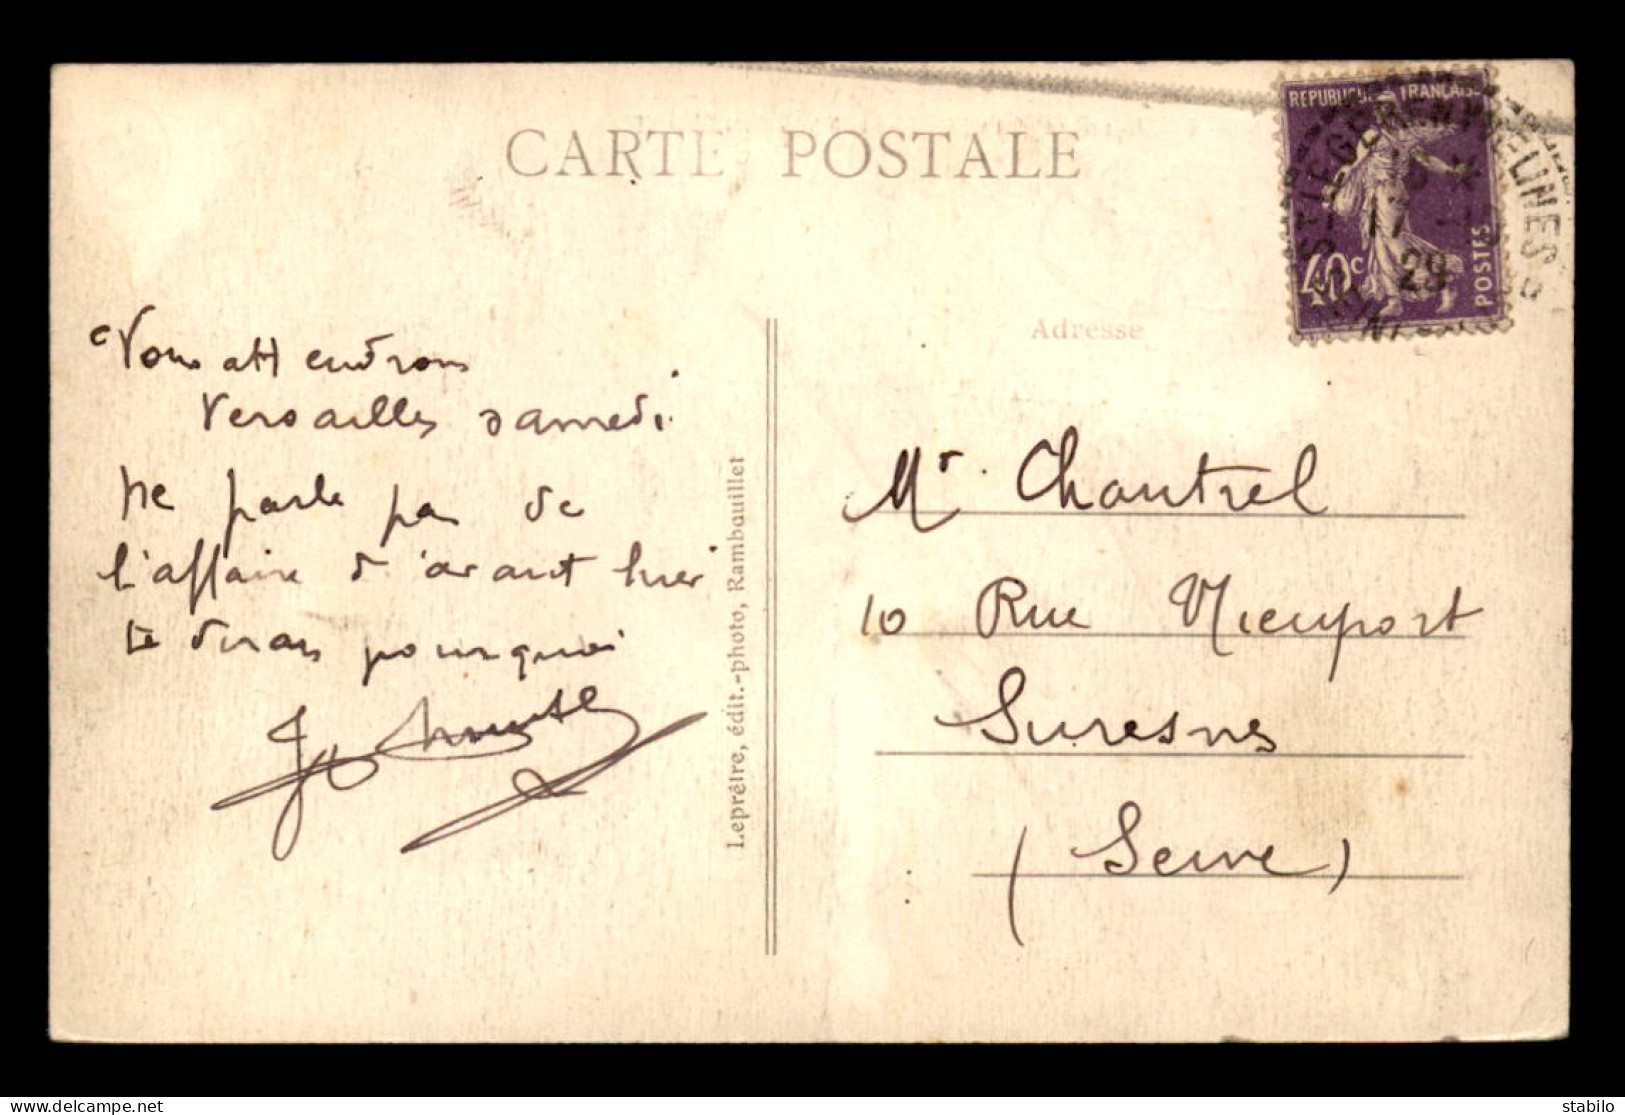 CARTE POSTALE
REPUBLIQUE FRANÇAISE
40c
POSTES
17
29
Adresse
Vous attendrons
Versailles samedi
Ne parle pas de
l'affaire d'avant hier
te dirai pourquoi
Leprêtre, édit.-photo, Rambouillet
Mr. Chantrel
10 Rue Nieuport
Suresnes
(Seine)
stabilo